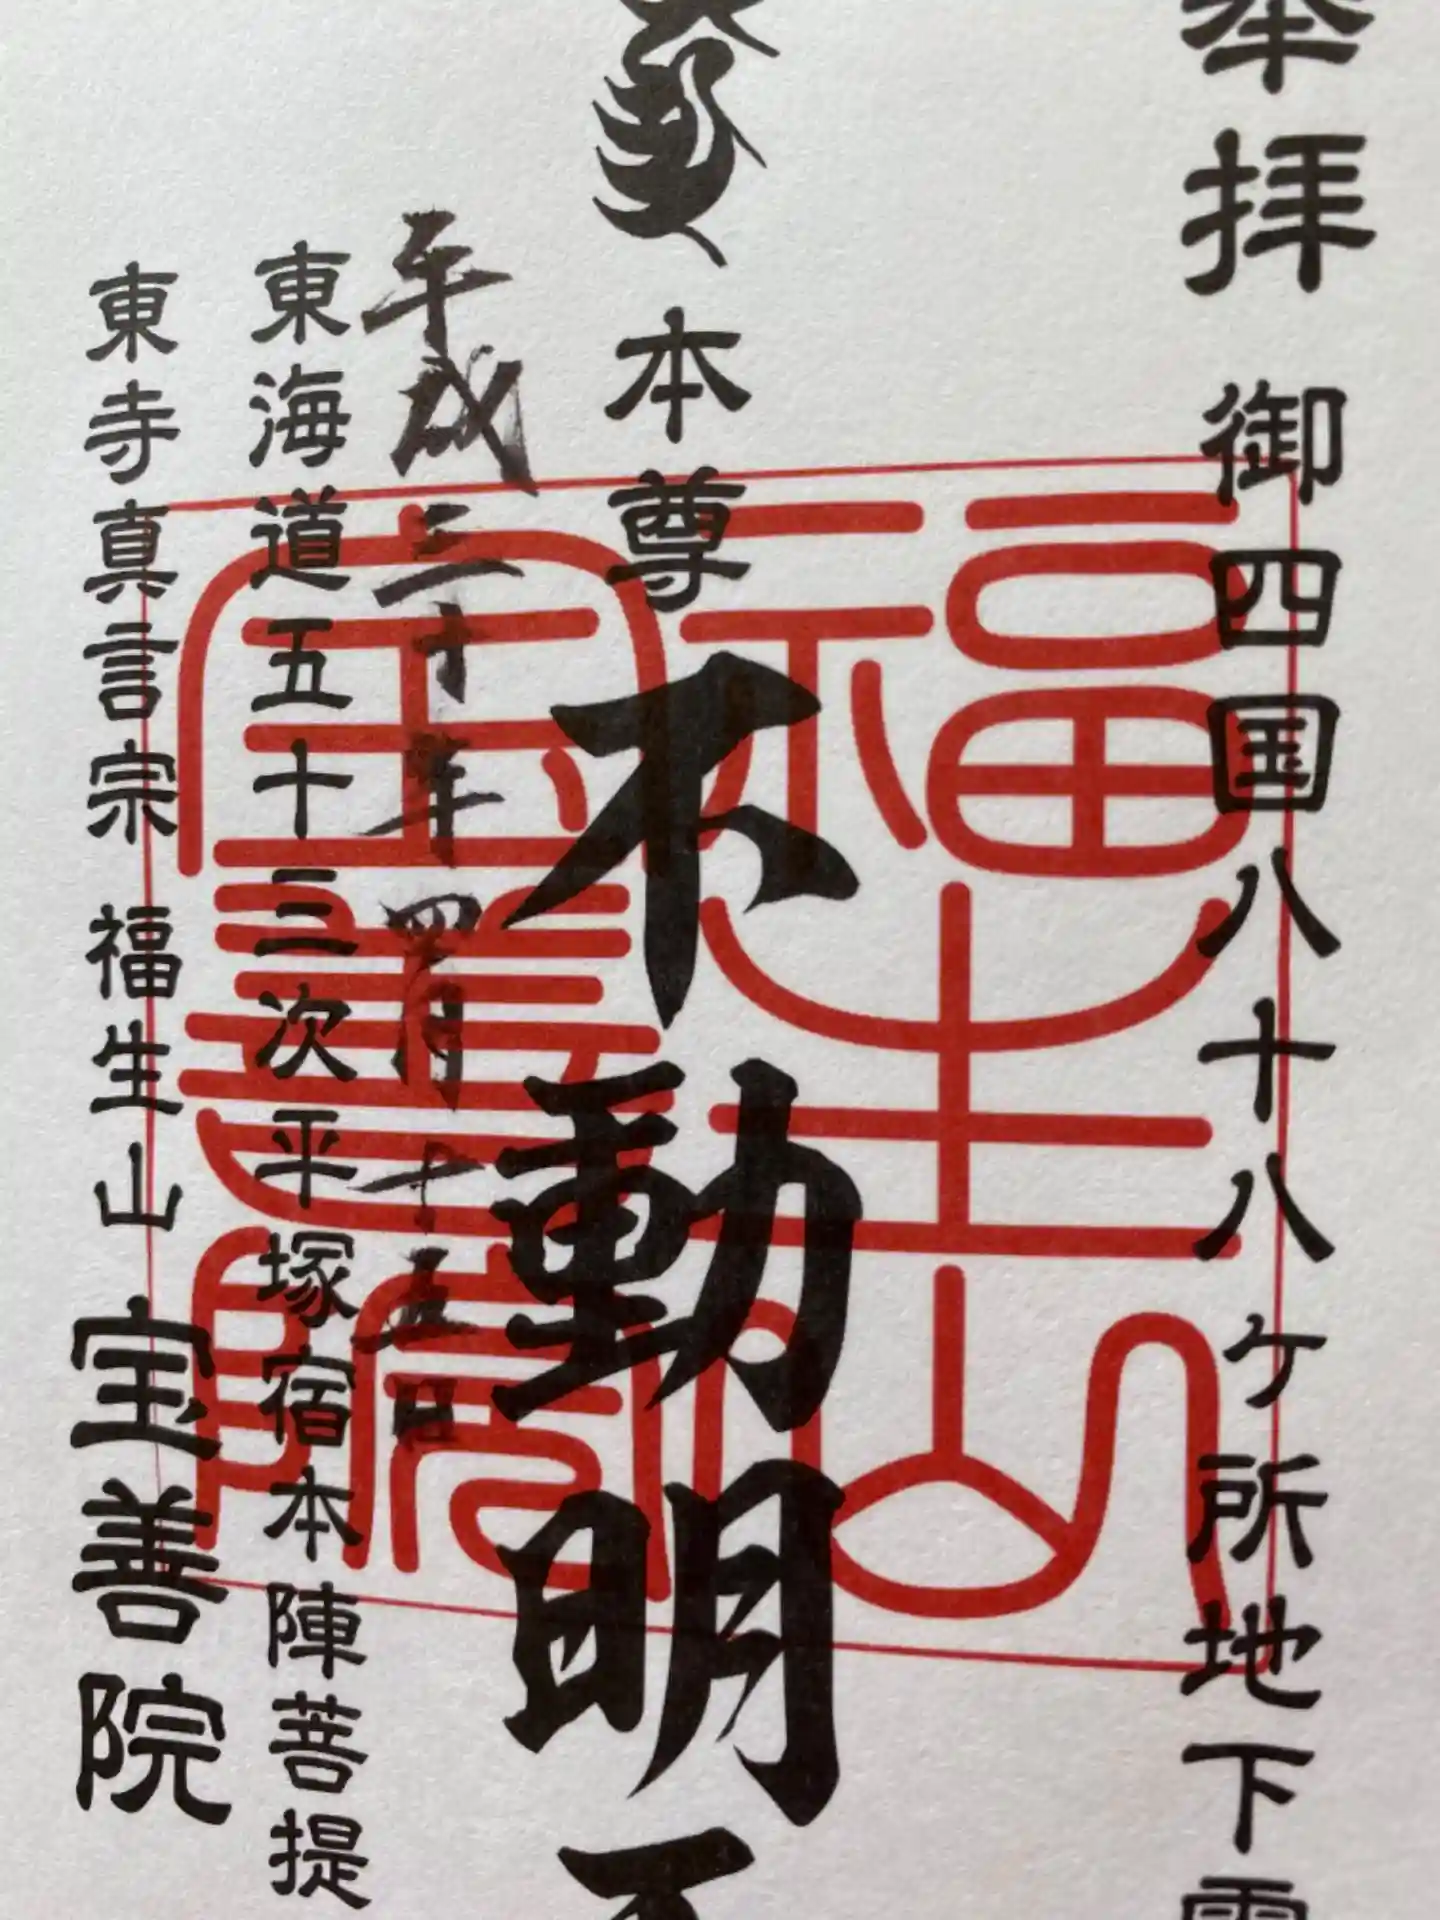 奉拝 御四国八十八ヶ所地下霊
本尊 不動明王
平成三十年四月十五日
東海道五十三次平塚宿本陣菩提
東寺真言宗 福生山 宝善院
福生山
宝善院